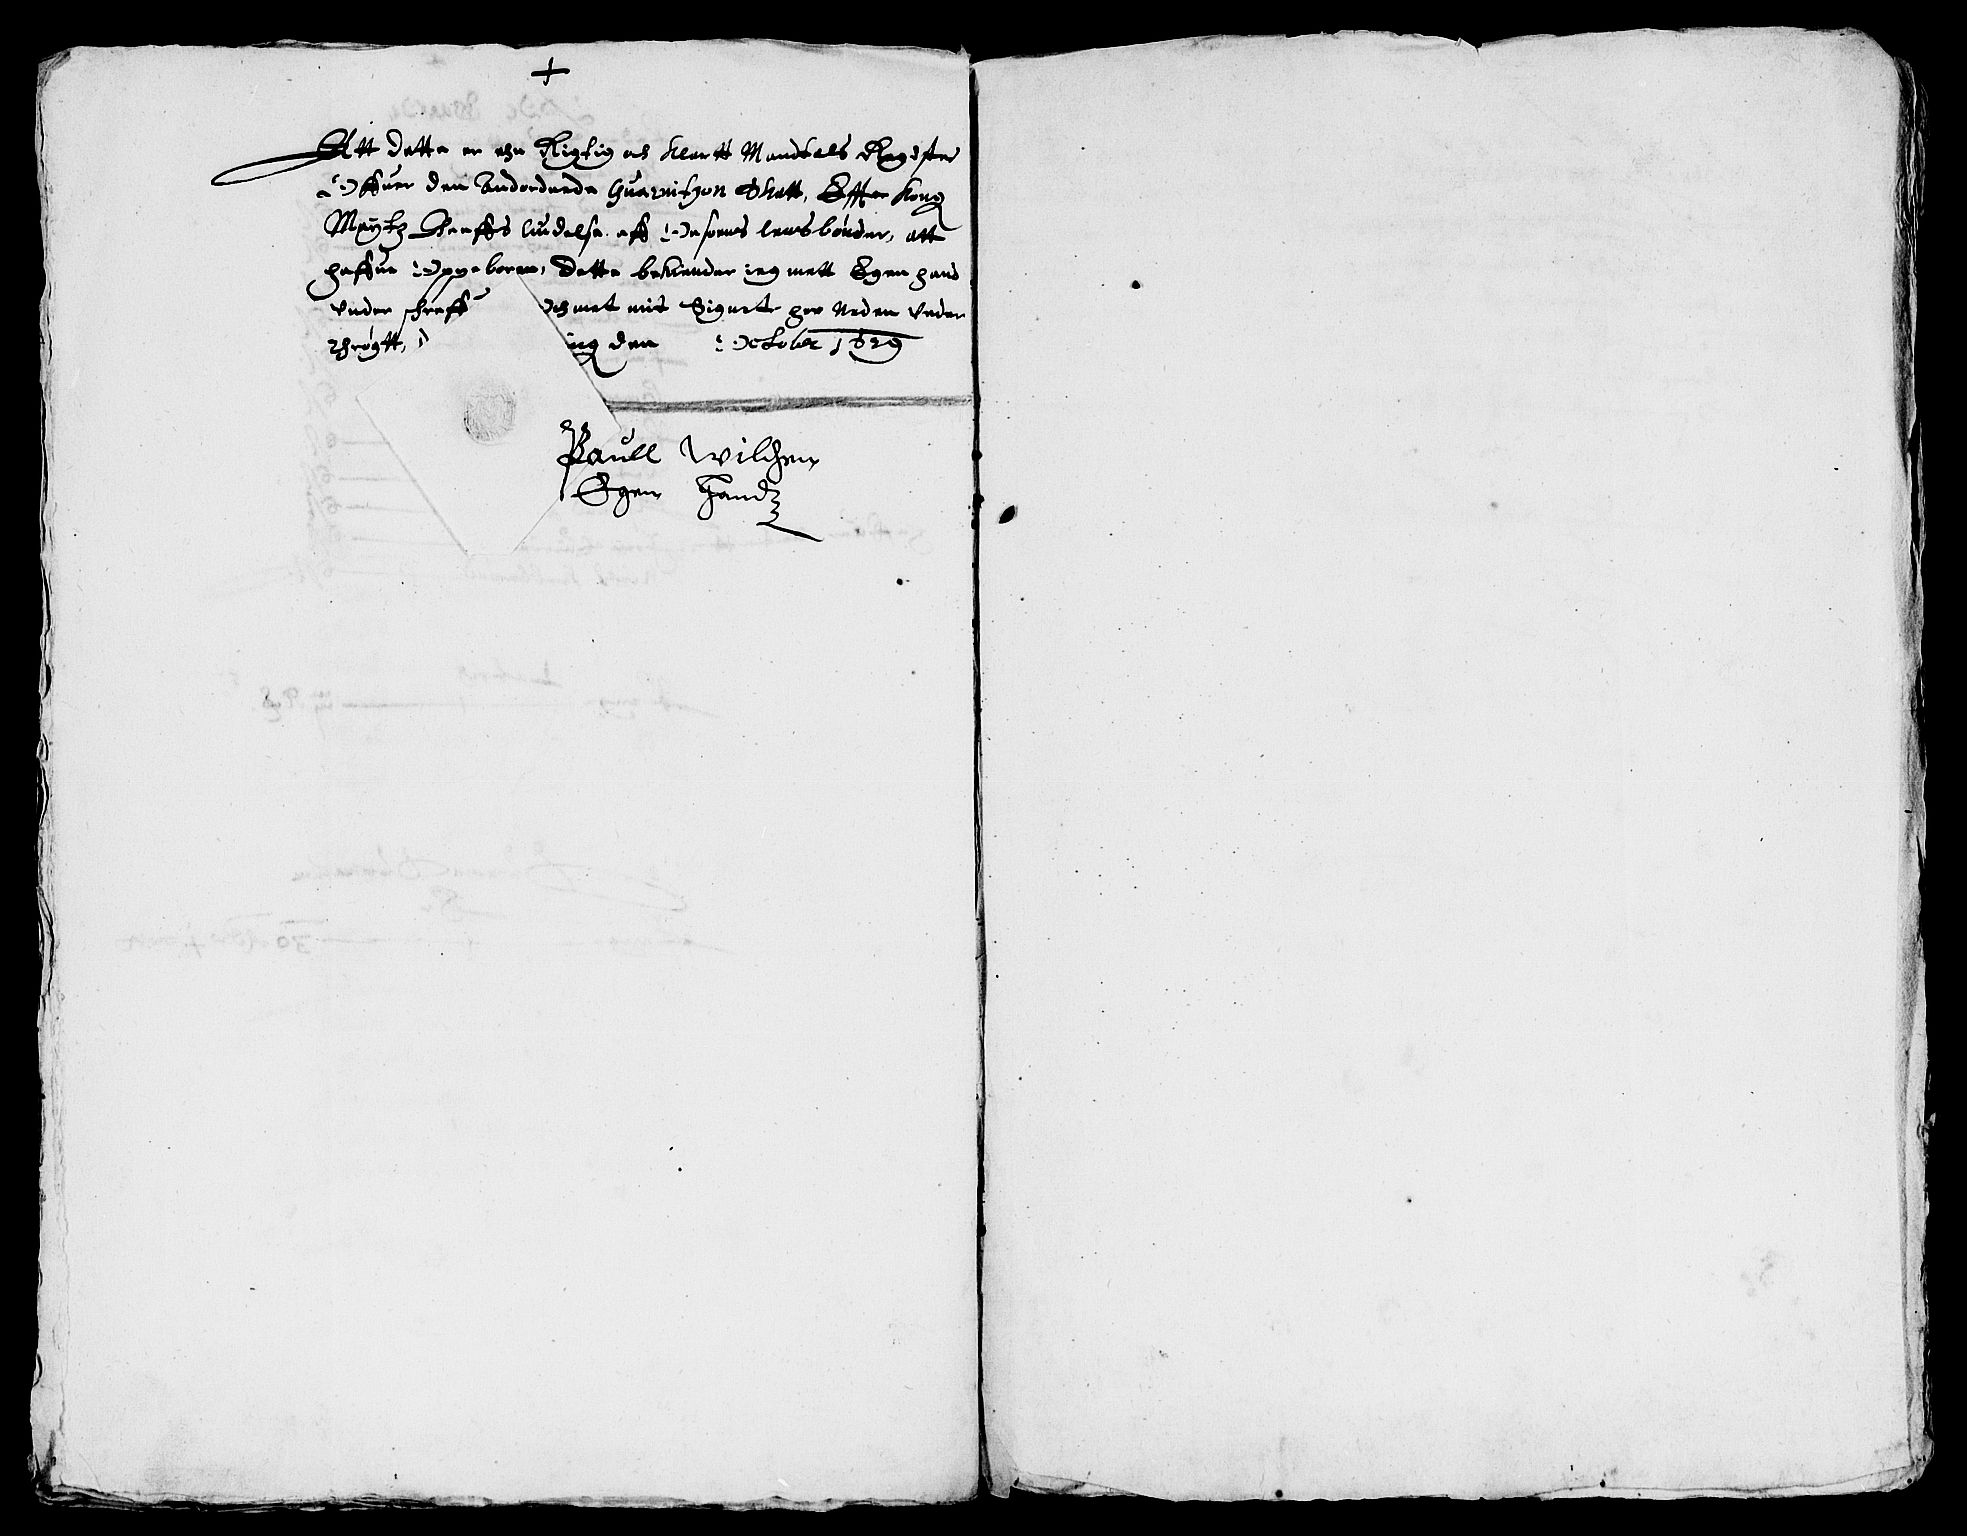 +
Att dette er ehn Rigtig och klartt Mandtals Register
Offuer den Andordnede Guarnitzon Skatt, Effter Kong
Maytz breffs liudelse. aff Mosons lensbønder, att
haffue Oppeboren, Dette bekiender ieg mett Egen hand
vnder schreff och met mit Signete her Neden vnder
thrøgtt, ing den October 1629
Paull Wilchen
Egen Handt